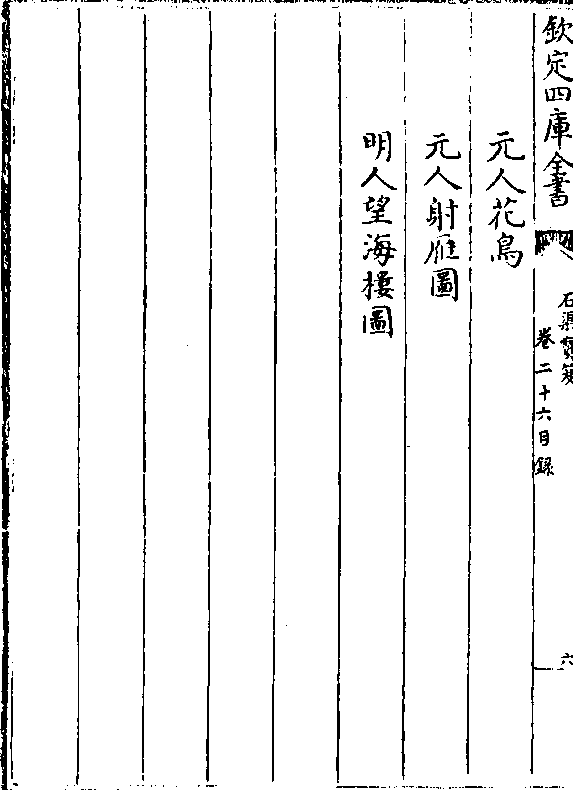 欽定四庫全書
石渠寶笈
卷二十六目錄
六
元人花鳥
元人射雁圖
明人望海樓圖